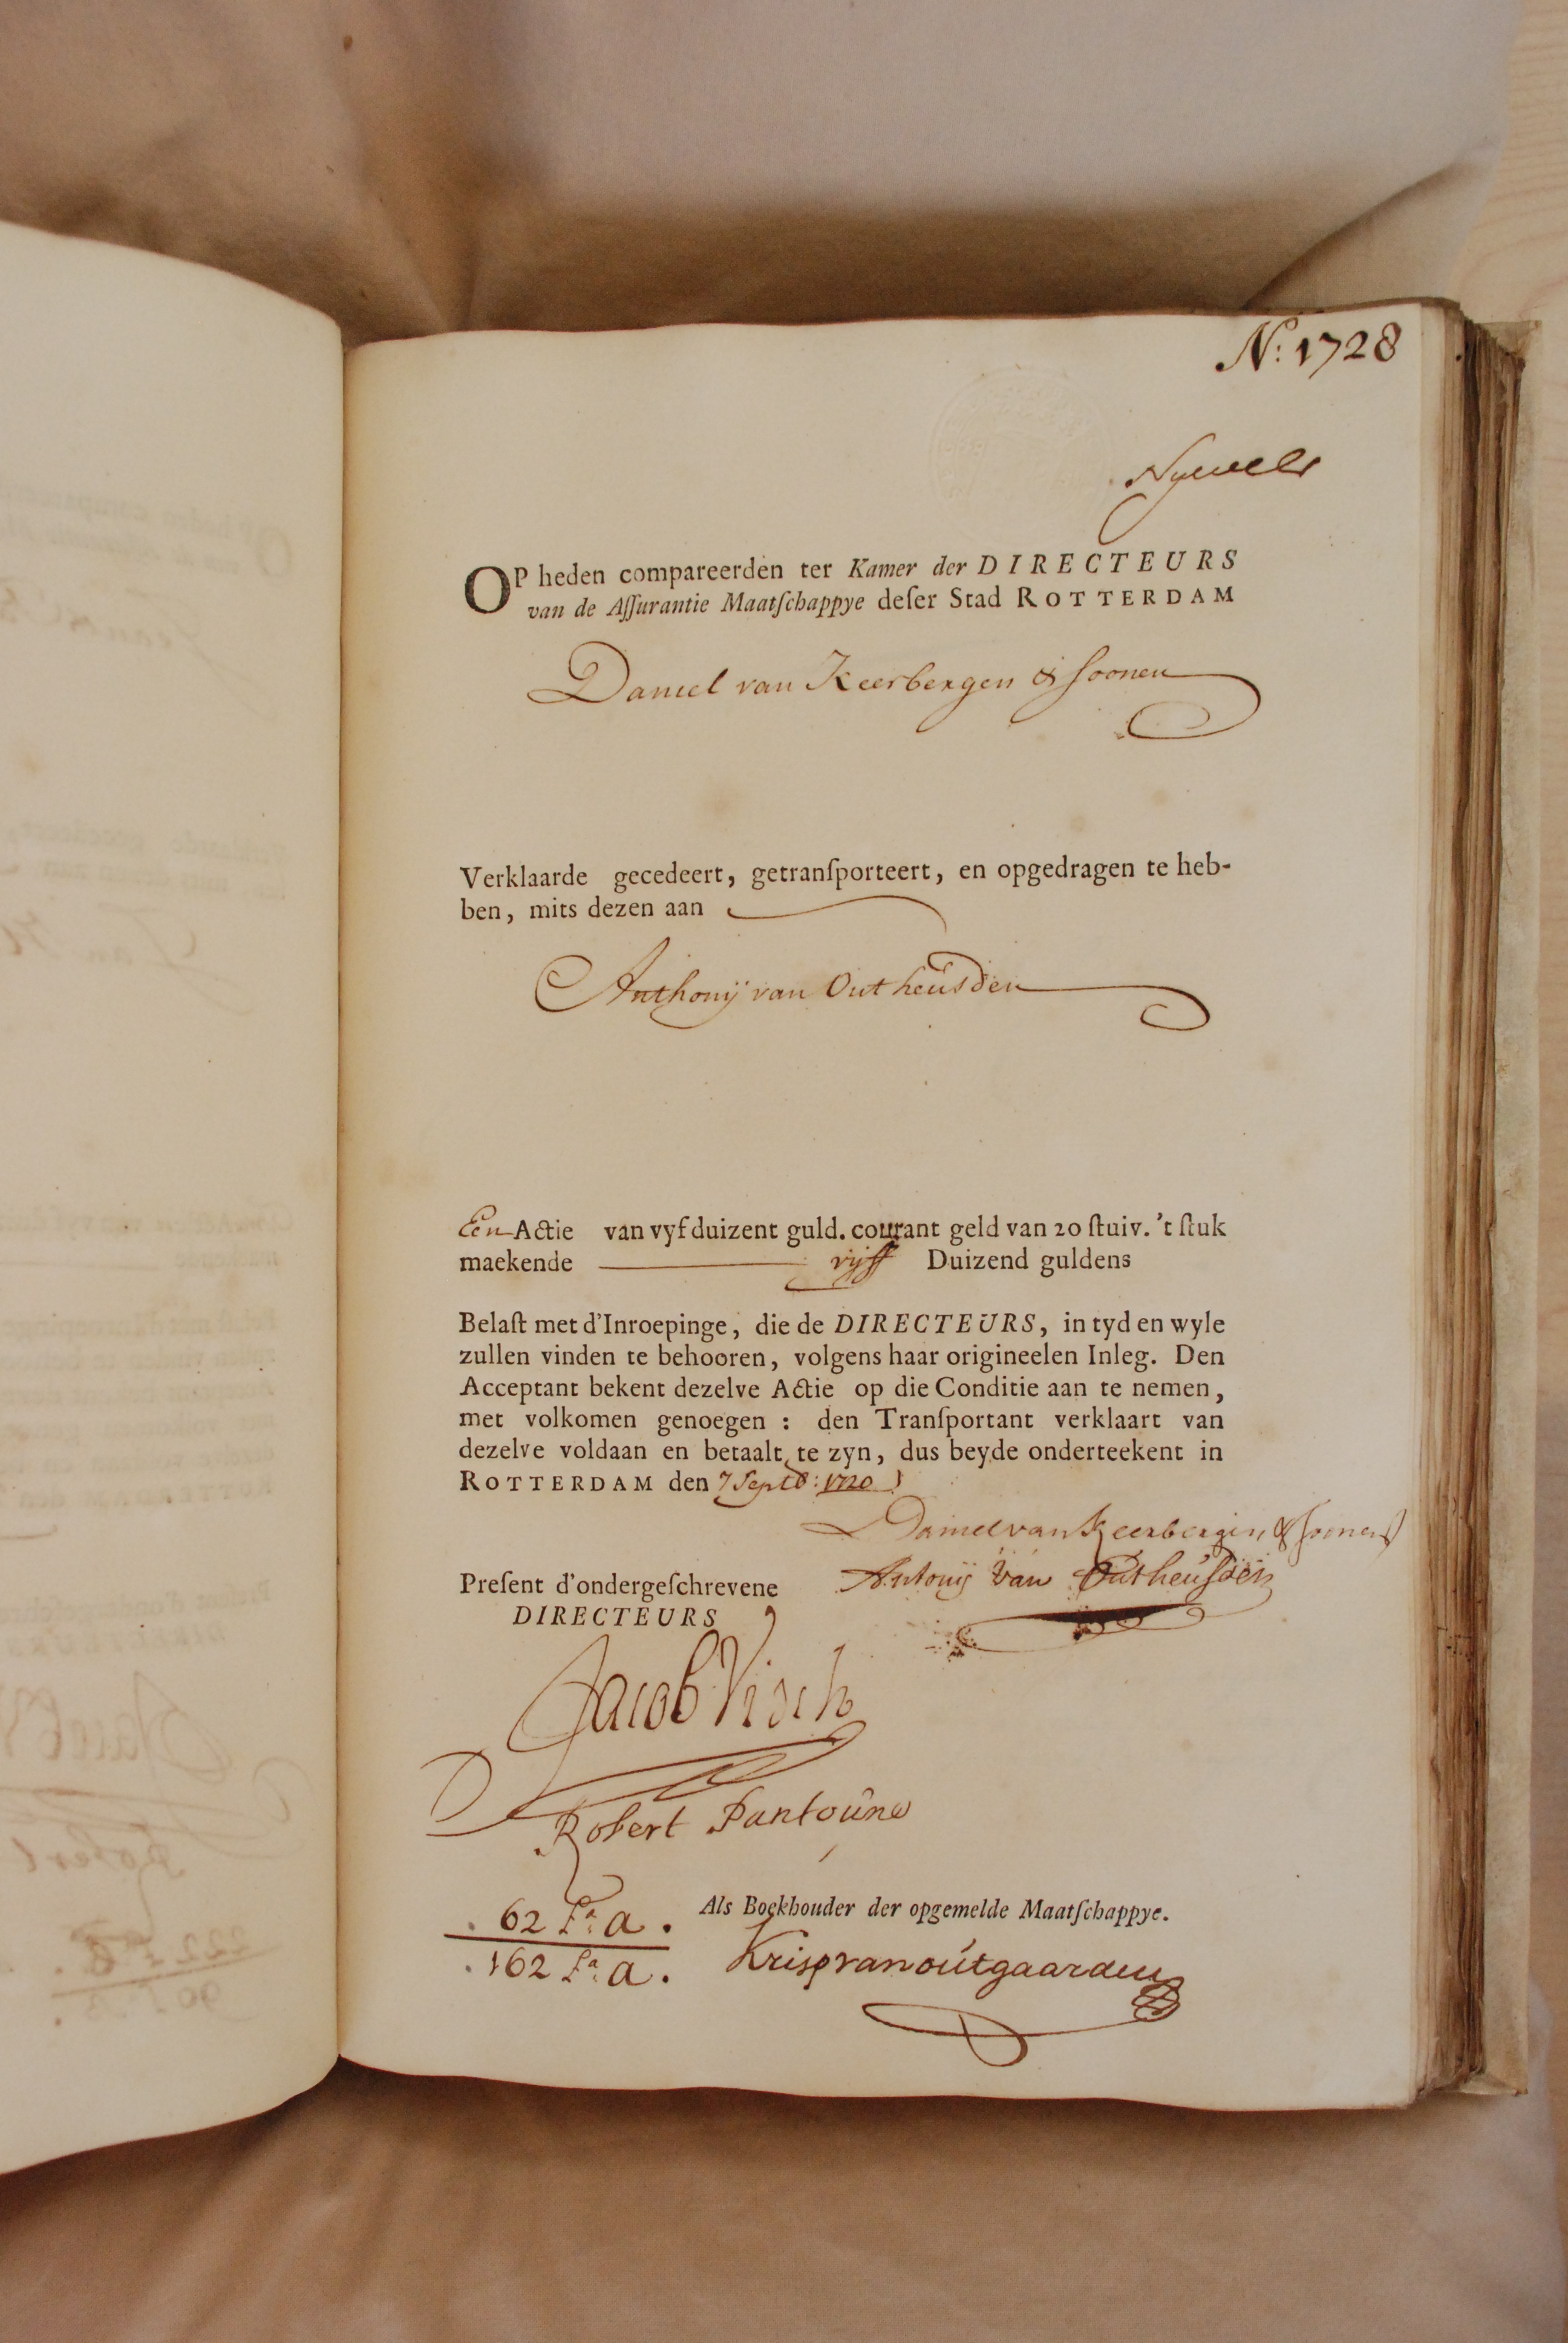 N: 1728
Nyvelt
OP heden compareerden ter Kamer der DIRECTEURS
van de Aſſurantie Maatſchappye deſer Stad ROTTERDAM
Daniel van Keerbergen & soonen
Verklaarde gecedeert, getranſporteert, en opgedragen te heb-
ben, mits dezen aan
Anthonij van Outheusden
Een Actie van vyf duizent guld. courant geld van 20 ſtuiv. 't ſtuk
maekende vijff Duizend guldens
Belaſt met d'Inroepinge, die de DIRECTEURS, in tyd en wyle
zullen vinden te behooren, volgens haar origineelen Inleg. Den
Acceptant bekent dezelve Actie op die Conditie aan te nemen,
met volkomen genoegen : den Tranſportant verklaart van
dezelve voldaan en betaalt te zyn, dus beyde onderteekent in
ROTTERDAM den 7 Septb: 1720
Daniel van Keerbergen & soonen
Antonij van Outheusden
Preſent d'ondergeſchrevene
DIRECTEURS
Jacob Visch
Robert
62 Fᵃ: a.
Als Boekhouder der opgemelde Maatſchappye.
162 Fᵃ: a.
Krisp van outgaarden